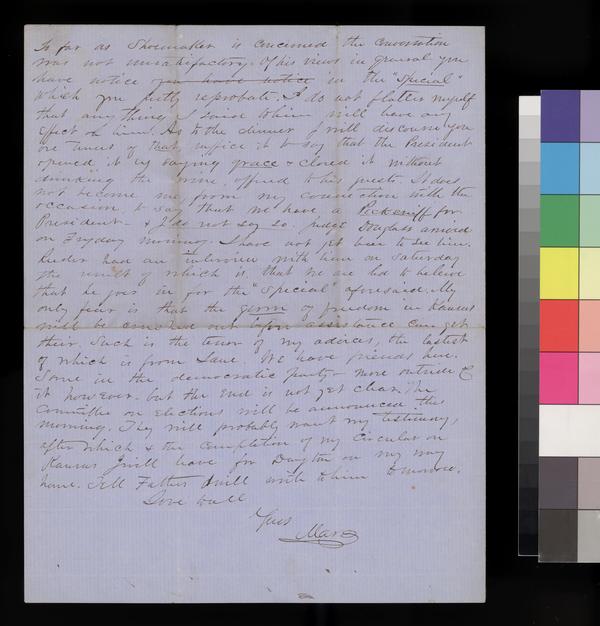 So far as Shoemaker is concerned the conversation
was not unsatisfactory. Of his views in general you
have notice you have notice in the "Special"
which you justly reprobate. I do not flatter myself
that any thing I said to him will have any
effect on him. As to the dinner I will discourse you
on
of that suffice it to say that the President
opened it by saying grace & closed it without
drinking the wine offered to his guests. It does
not become me from my connection with the
occasion to say that we have a Pecksniff for
President - & I do not say so. Judge Douglass arrived
on Fryday morning. I have not yet been to see him.
Reeder had an interview with him on Saturday
the result of which is, that we are led to believe
that he goes in for the "Special" aforesaid. My
only fear is that the germ of freedom in Kansas
will be crushed out before assistance can get
their. Such is the tenor of my advices, the lastest
of which is from Lane. We have friends here.
Some in the democratic party - more outside of
it however - but the end is not yet clear. The
Committee on Elections will be announced this
morning. They will probably want my testimony,
after which & the completion of my Circular on
Kansas I will leave for Dayton on my way
home. Tell Father I will write to him tomorrow.
Love to all
Yours
Marc